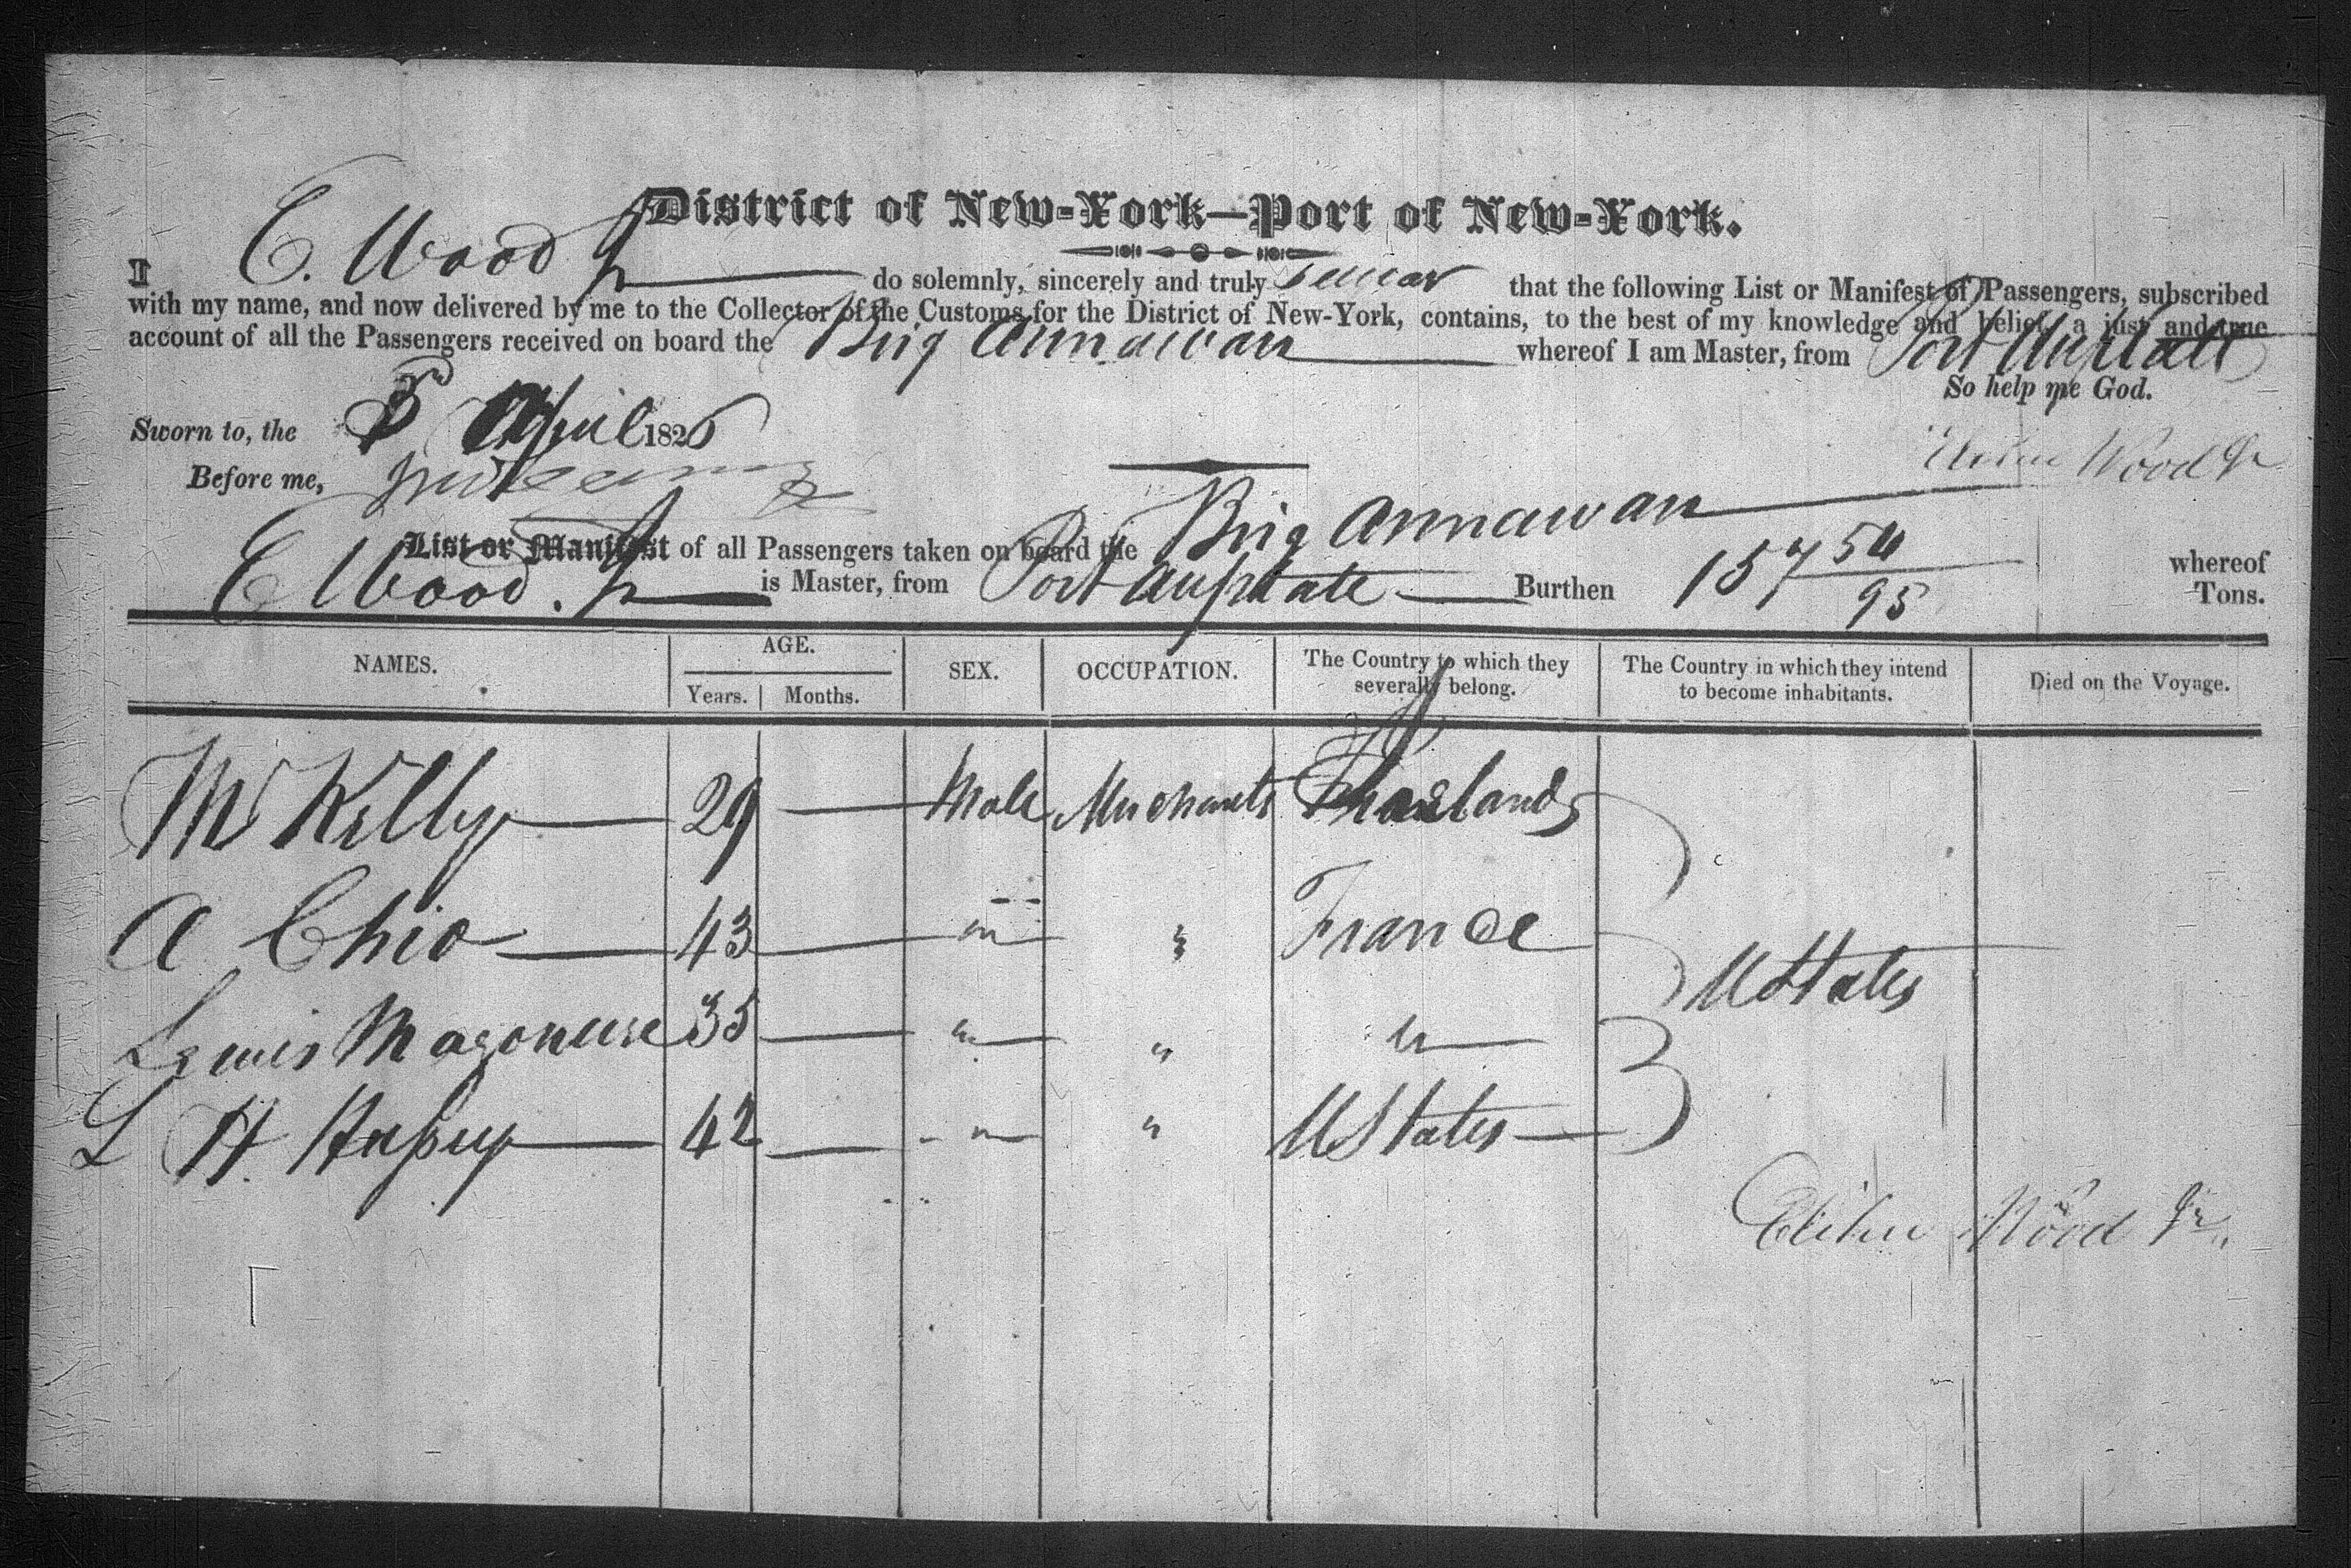 District of New-York—Port of New-York.
I E. Wood Jr do solemnly, sincerely and truly swear that the following List or Manifest of Passengers, subscribed
with my name, and now delivered by me to the Collector of the Customs for the District of New-York, contains, to the best of my knowledge and belief, a just and true
account of all the Passengers received on board the Brig Annawan whereof I am Master, from Port Auplate
So help me God.
Sworn to, the April 1826
Elihu Wood Jr
Before me,
List or Manifest of all Passengers taken on board the Brig Annawan whereof
E Wood. Jr is Master, from Port Auplate Burthen 157 54/95 Tons.
NAMES. AGE. SEX. OCCUPATION. The Country to which they severally belong. The Country in which they intend to become inhabitants. Died on the Voyage.
Years. Months.
Mr Kelly 29 Male Merchants
A Chio 43 " " France
Lewis 35 " " " UStates
L H 42 " " UStates
Elihu Wood Jr.